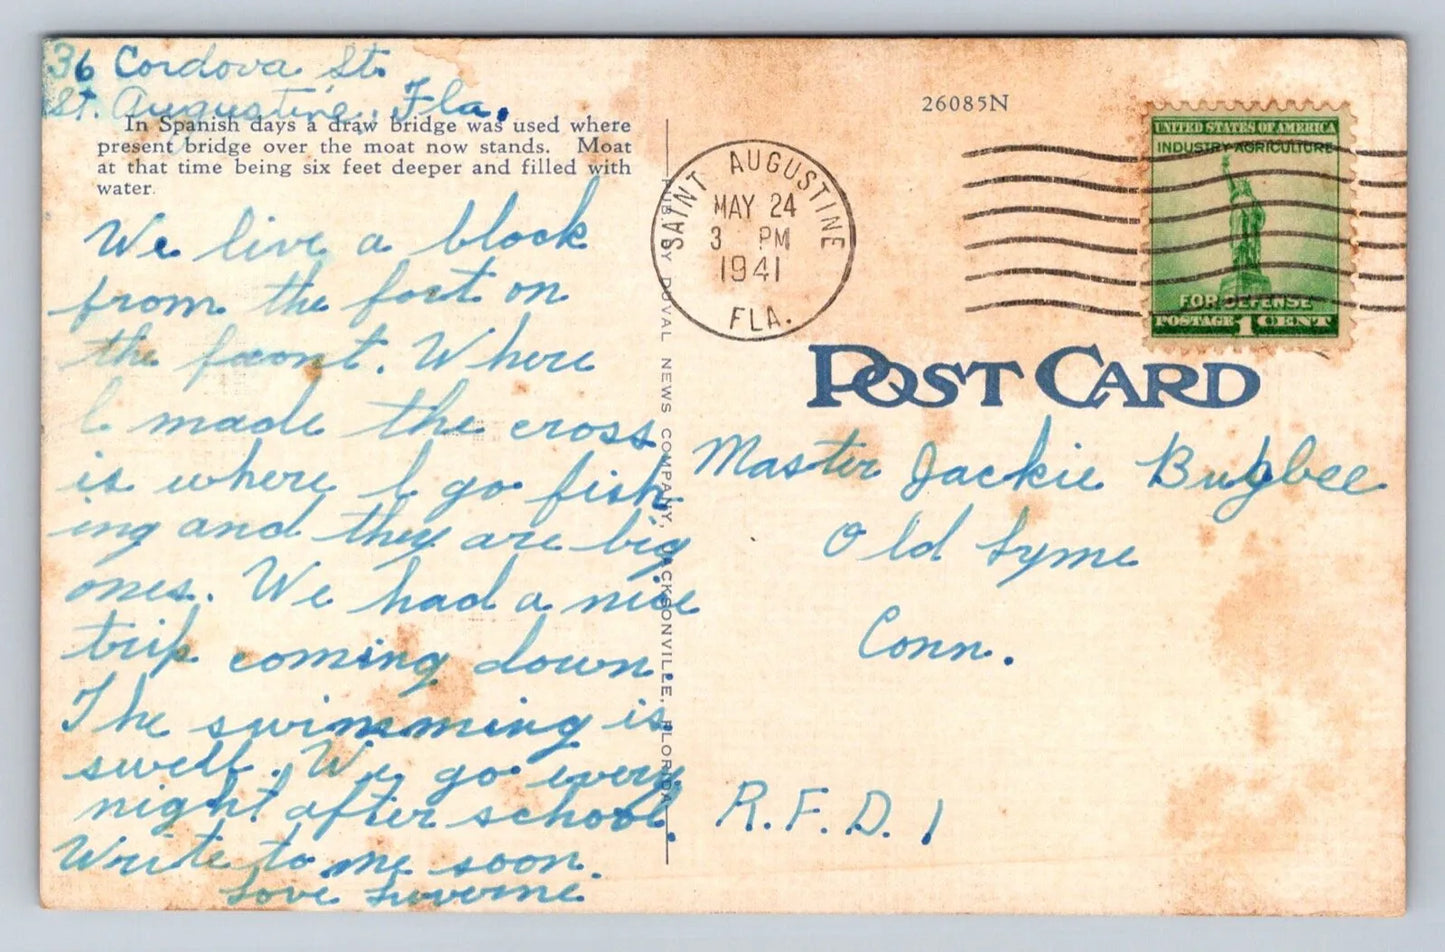 36 Cordova St.
St. Augustine, Fla.
In Spanish days a draw bridge was used where
present bridge over the moat now stands. Moat
at that time being six feet deeper and filled with
water.
We live a block
from the fort on
the front. Where
I made the cross
is where I go fish
ing and they are big
ones. We had a nice
trip coming down.
The swimming is
swell. We go every
night after school.
Write to me soon.
Love Luverne
PUB. BY DUVAL NEWS COMPANY, JACKSONVILLE, FLORIDA
26085N
SAINT AUGUSTINE
MAY 24
3 PM
1941
FLA.
UNITED STATES OF AMERICA
INDUSTRY-AGRICULTURE
FOR DEFENSE
POSTAGE 1 CENT
POST CARD
Master Jackie Bugbee
Old Lyme
Conn.
R.F.D. 1